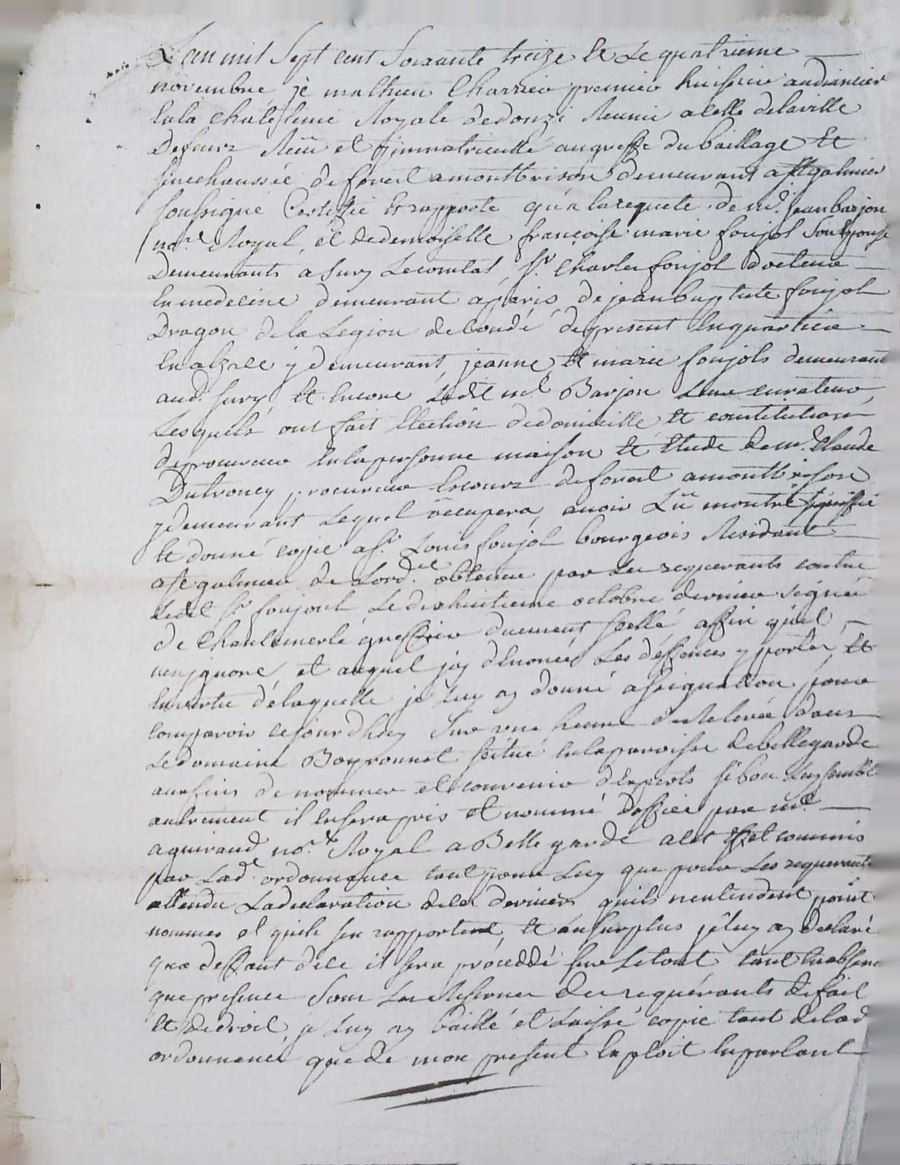 L'an mil sept cent soixante treize et le quatrieme
novembre je mathieu Charrien premier huissier audiancier
en la Chatellenie Royale de donzi Reunie a celle de la ville
De feurs Receu et immatriculle au greffe du bailliage Et
senechaussée de forest a montbrison demeurant a st galmier
soussigné Certiffie et rapporte qu'a la requete de me. jean barjon
nore. Royal, et de demoiselle françoise marie foujol son Epouse
Demeurants a Sury Le comtal, Sr. Charles foujol docteur
En medecine demeurant a paris, de jean baptiste foujol
Dragon de la Legion de Condé, de present En quartier
En alzace y demeurant, jeanne, Et marie foujols demeurant
aud. Sury Et Encore Ledit me Barjon Leur curateur
Lesquels ont fait Election de domicille Et constitution
de procureur En la personne maison Et Etude de me. Claude
Dutroncy procureur Es cours de forest a montbrison
y demeurant Lequel occupera avoir montré signiffié
Et donné copie a sr. Louis foujol bourgeois Residant
a st galmier de L'ord.ce obtenue par Les requerants contre
Ledit Sr. foujol Le dixhuitieme octobre dernier signée
de Chantemerle greffier duement scellé affin qu'il
n'en ignore, et auquel j'ay dénoncé Les deffences y portées, Et
En vertu d'elaquelle je Luy ay donné assignation pour
comparoir cejourdhuy sur une heure de Relevée dans
Le domaine Boyronnet scitué En la paroisse de bellegarde
aux fins de nommer et convenir d'Experts si bon Luy semble
autrement il En sera pris et nommé D'office par me.
aguiraud nore. Royal a Bellegarde a cet Effet commis
par Lad. ordonnance tant pour Luy que pour Les requerants
attendu La declaration de ces derniers quils n'entendent point
nommer et quils s'en rapportent, Et au surplus je luy ay declaré
qua deffaut de ce il sera procéddé sur Le tout tant En absence
que presence Sous Les Reserves des requérants de fait
Et de droit je Luy ay baillé et Laissé copie tant de lad
ordonnance que de mon present Exploit En parlant